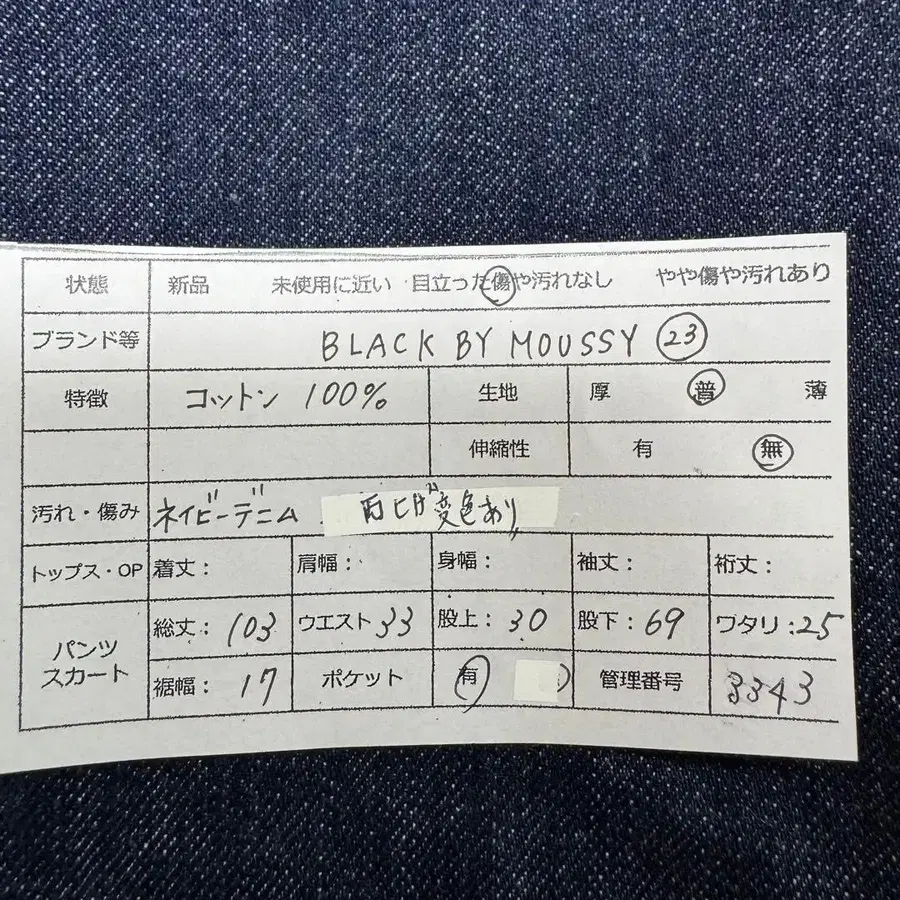 状態 新品 未使用に近い 目立った傷や汚れなし やや傷や汚れあり
ブランド等 BLACK BY MOUSSY 23
特徴 コットン 100% 生地 厚 普 薄
伸縮性 有 無
汚れ・傷み ネイビーデニム 変色あり
トップス・OP 着丈： 肩幅： 身幅： 袖丈： 裄丈：
パンツ スカート 総丈：103 ウエスト 33 股上：30 股下：69 ワタリ：25
裾幅：17 ポケット 有 管理番号 3343